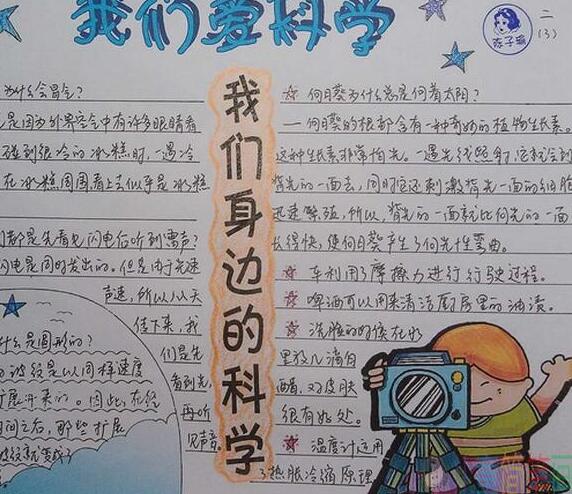 我们爱科学
陈子瑜
二
(3)
我们身边的科学
为什么会冒气?
是因为外界空气中有许多眼睛看
碰到很冷的冰糕时,一遇冷
在冰糕周围,看上去似乎是冰糕
都是先看见闪电后听到雷声?
闪电是同时发出的。但是由于光速
声速,所以从天
传下来,我
们是先
看到光,
再听
见声音。
什么是圆形的?
的波纹是以同样速度
扩展开来的。因此,在经
时间之后,那些扩展
☆ 向日葵为什么总是向着太阳?
一向日葵的根部含有一种奇妙的植物生长素。
这种生长素非常怕光。一遇光线照射,它就会到
背光的一面去,同时它还刺激背光一面的细胞
迅速繁殖,所以,背光的一面就比向光的一面
长得快,使向日葵产生了向光性弯曲。
☆ 车利用了摩擦力进行行驶过程。
☆ 啤酒可以用来清洁厨房里的油渍。
☆ 洗脸的时候在水
里放几滴白
醋,对皮肤
很有好处。
☆ 温度计运用
了热胀冷缩原理